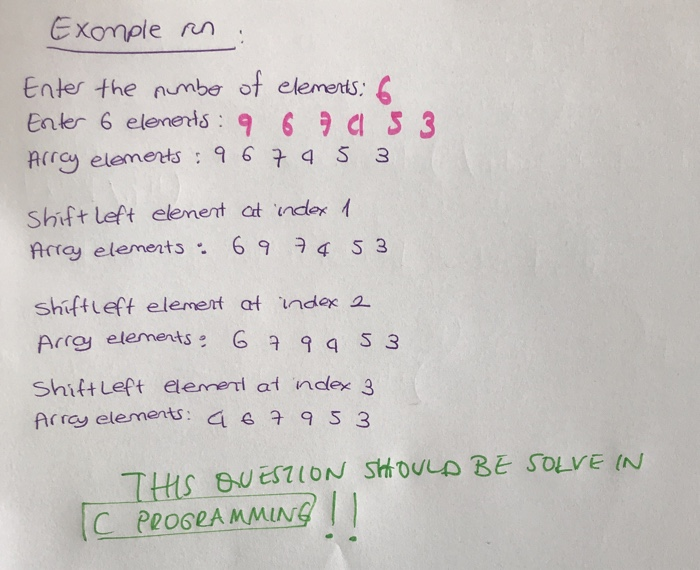 Example run :
Enter the number of elements: 6
Enter 6 elements : 9 6 7 4 5 3
Array elements : 9 6 7 4 5 3
Shift Left element at index 1
Array elements : 6 9 7 4 5 3
ShiftLeft element at index 2
Array elements : 6 7 9 4 5 3
ShiftLeft element at index 3
Array elements: 4 6 7 9 5 3
THIS QUESTION SHOULD BE SOLVE IN
C PROGRAMMING!!